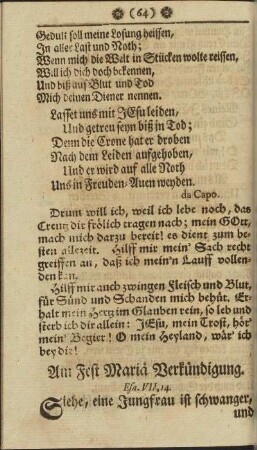 (64)
Gedult soll meine Losung heissen,
In aller Last und Noth;
Wenn mich die Welt in Stücken wolte reissen,
Will ich dich doch bekennen,
Und biß auf Blut und Tod
Mich deinen Diener nennen.
Lasset uns mit JEsu leiden,
Und getreu seyn biß in Tod;
Denn die Crone hat er droben
Nach dem Leiden aufgehoben,
Und er wird auf alle Noth
Uns in Freuden-Auen weyden.
da Capo.
Drum will ich, weil ich lebe noch, das
Creutz dir frölich tragen nach; mein GOtt,
mach mich darzu bereit! es dient zum be-
sten allezeit. Hilff mir mein' Sach recht
greiffen an, daß ich mein'n Lauff vollen-
den kan.
Hilff mir auch zwingen Fleisch und Blut,
für Sünd und Schanden mich behüt. Er-
halt mein Hertz im Glauben rein, so leb und
sterb ich dir allein: JEsu, mein Trost, hör'
mein' Begier! O mein Heyland, wär' ich
bey dir!
Am Fest Mariä Verkündigung.
Esa. VII, 14.
Siehe, eine Jungfrau ist schwanger,
und